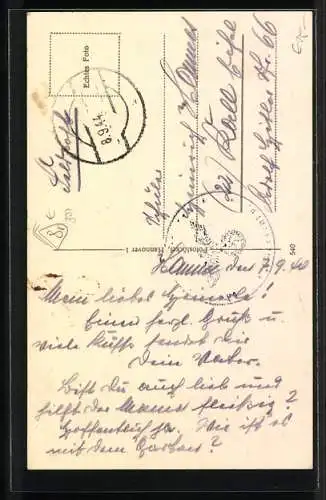 Echtes Foto
8.9.44
Feldpost
Schüler
Heinrich
(22) Kall Eifel
Adolf Hitler Str. 66
Fotostöckel, Hannover 1
540
den 7.9.44
Mein liebes !
Einen herzl. Gruß u.
viele Küsse sendet dir
Dein Vater.
Bist du auch lieb und
hilfst der Mama fleißig?
Hoffentlich ja. Wie ist es
mit dem Garten?